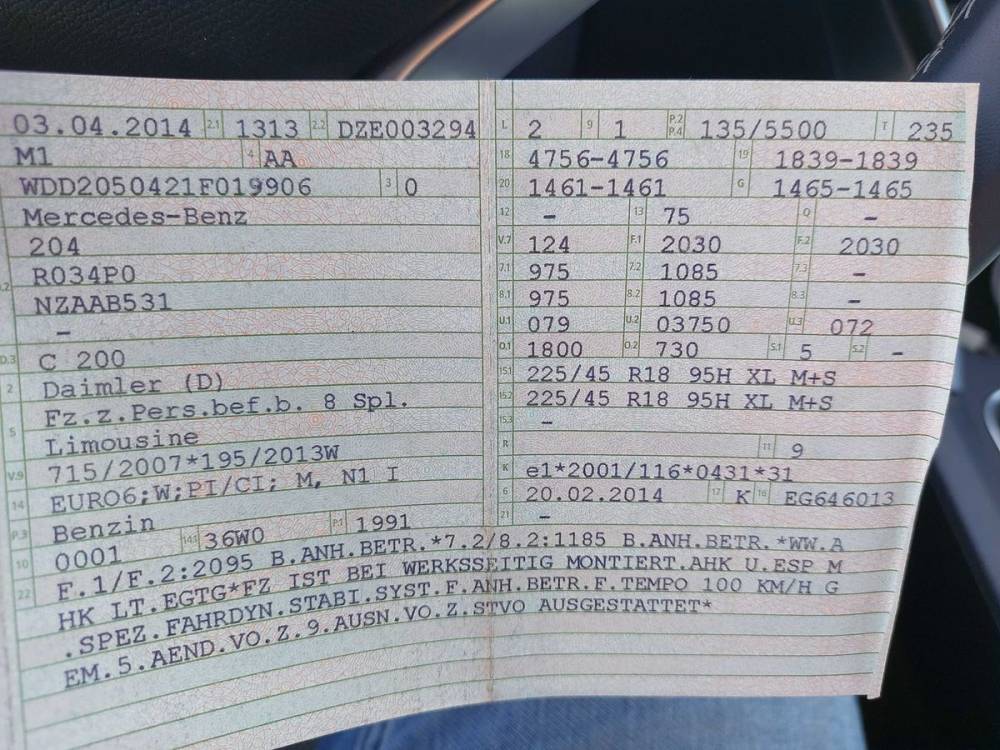 03.04.2014 2.1 1313 2.2 DZE003294
M1 4 AA
WDD2050421F019906 3 0
Mercedes-Benz
204
R034P0
NZAAB531
–
D.3 C 200
2 Daimler (D)
Fz.z.Pers.bef.b. 8 Spl.
5 Limousine
V.9 715/2007*195/2013W
14 EURO6;W;PI/CI; M, N1 I
P.3 Benzin
10 0001 14.1 36W0 P.1 1991
L 2 9 1 P.2 P.4 135/5500 T 235
18 4756-4756 19 1839-1839
20 1461-1461 G 1465-1465
12 – 13 75 Q –
V.7 124 F.1 2030 F.2 2030
7.1 975 7.2 1085 7.3 –
8.1 975 8.2 1085 8.3 –
U.1 079 U.2 03750 U.3 072
O.1 1800 O.2 730 S.1 5 S.2 –
15.1 225/45 R18 95H XL M+S
15.2 225/45 R18 95H XL M+S
15.3 –
R 11 9
K e1*2001/116*0431*31
6 20.02.2014 17 K 16 EG646013
21 –
22 F.1/F.2:2095 B.ANH.BETR.*7.2/8.2:1185 B.ANH.BETR.*WW.A
HK LT.EGTG*FZ IST BEI WERKSSEITIG MONTIERT.AHK U.ESP M
.SPEZ.FAHRDYN.STABI.SYST.F.ANH.BETR.F.TEMPO 100 KM/H G
EM.5.AEND.VO.Z.9.AUSN.VO.Z.STVO AUSGESTATTET*